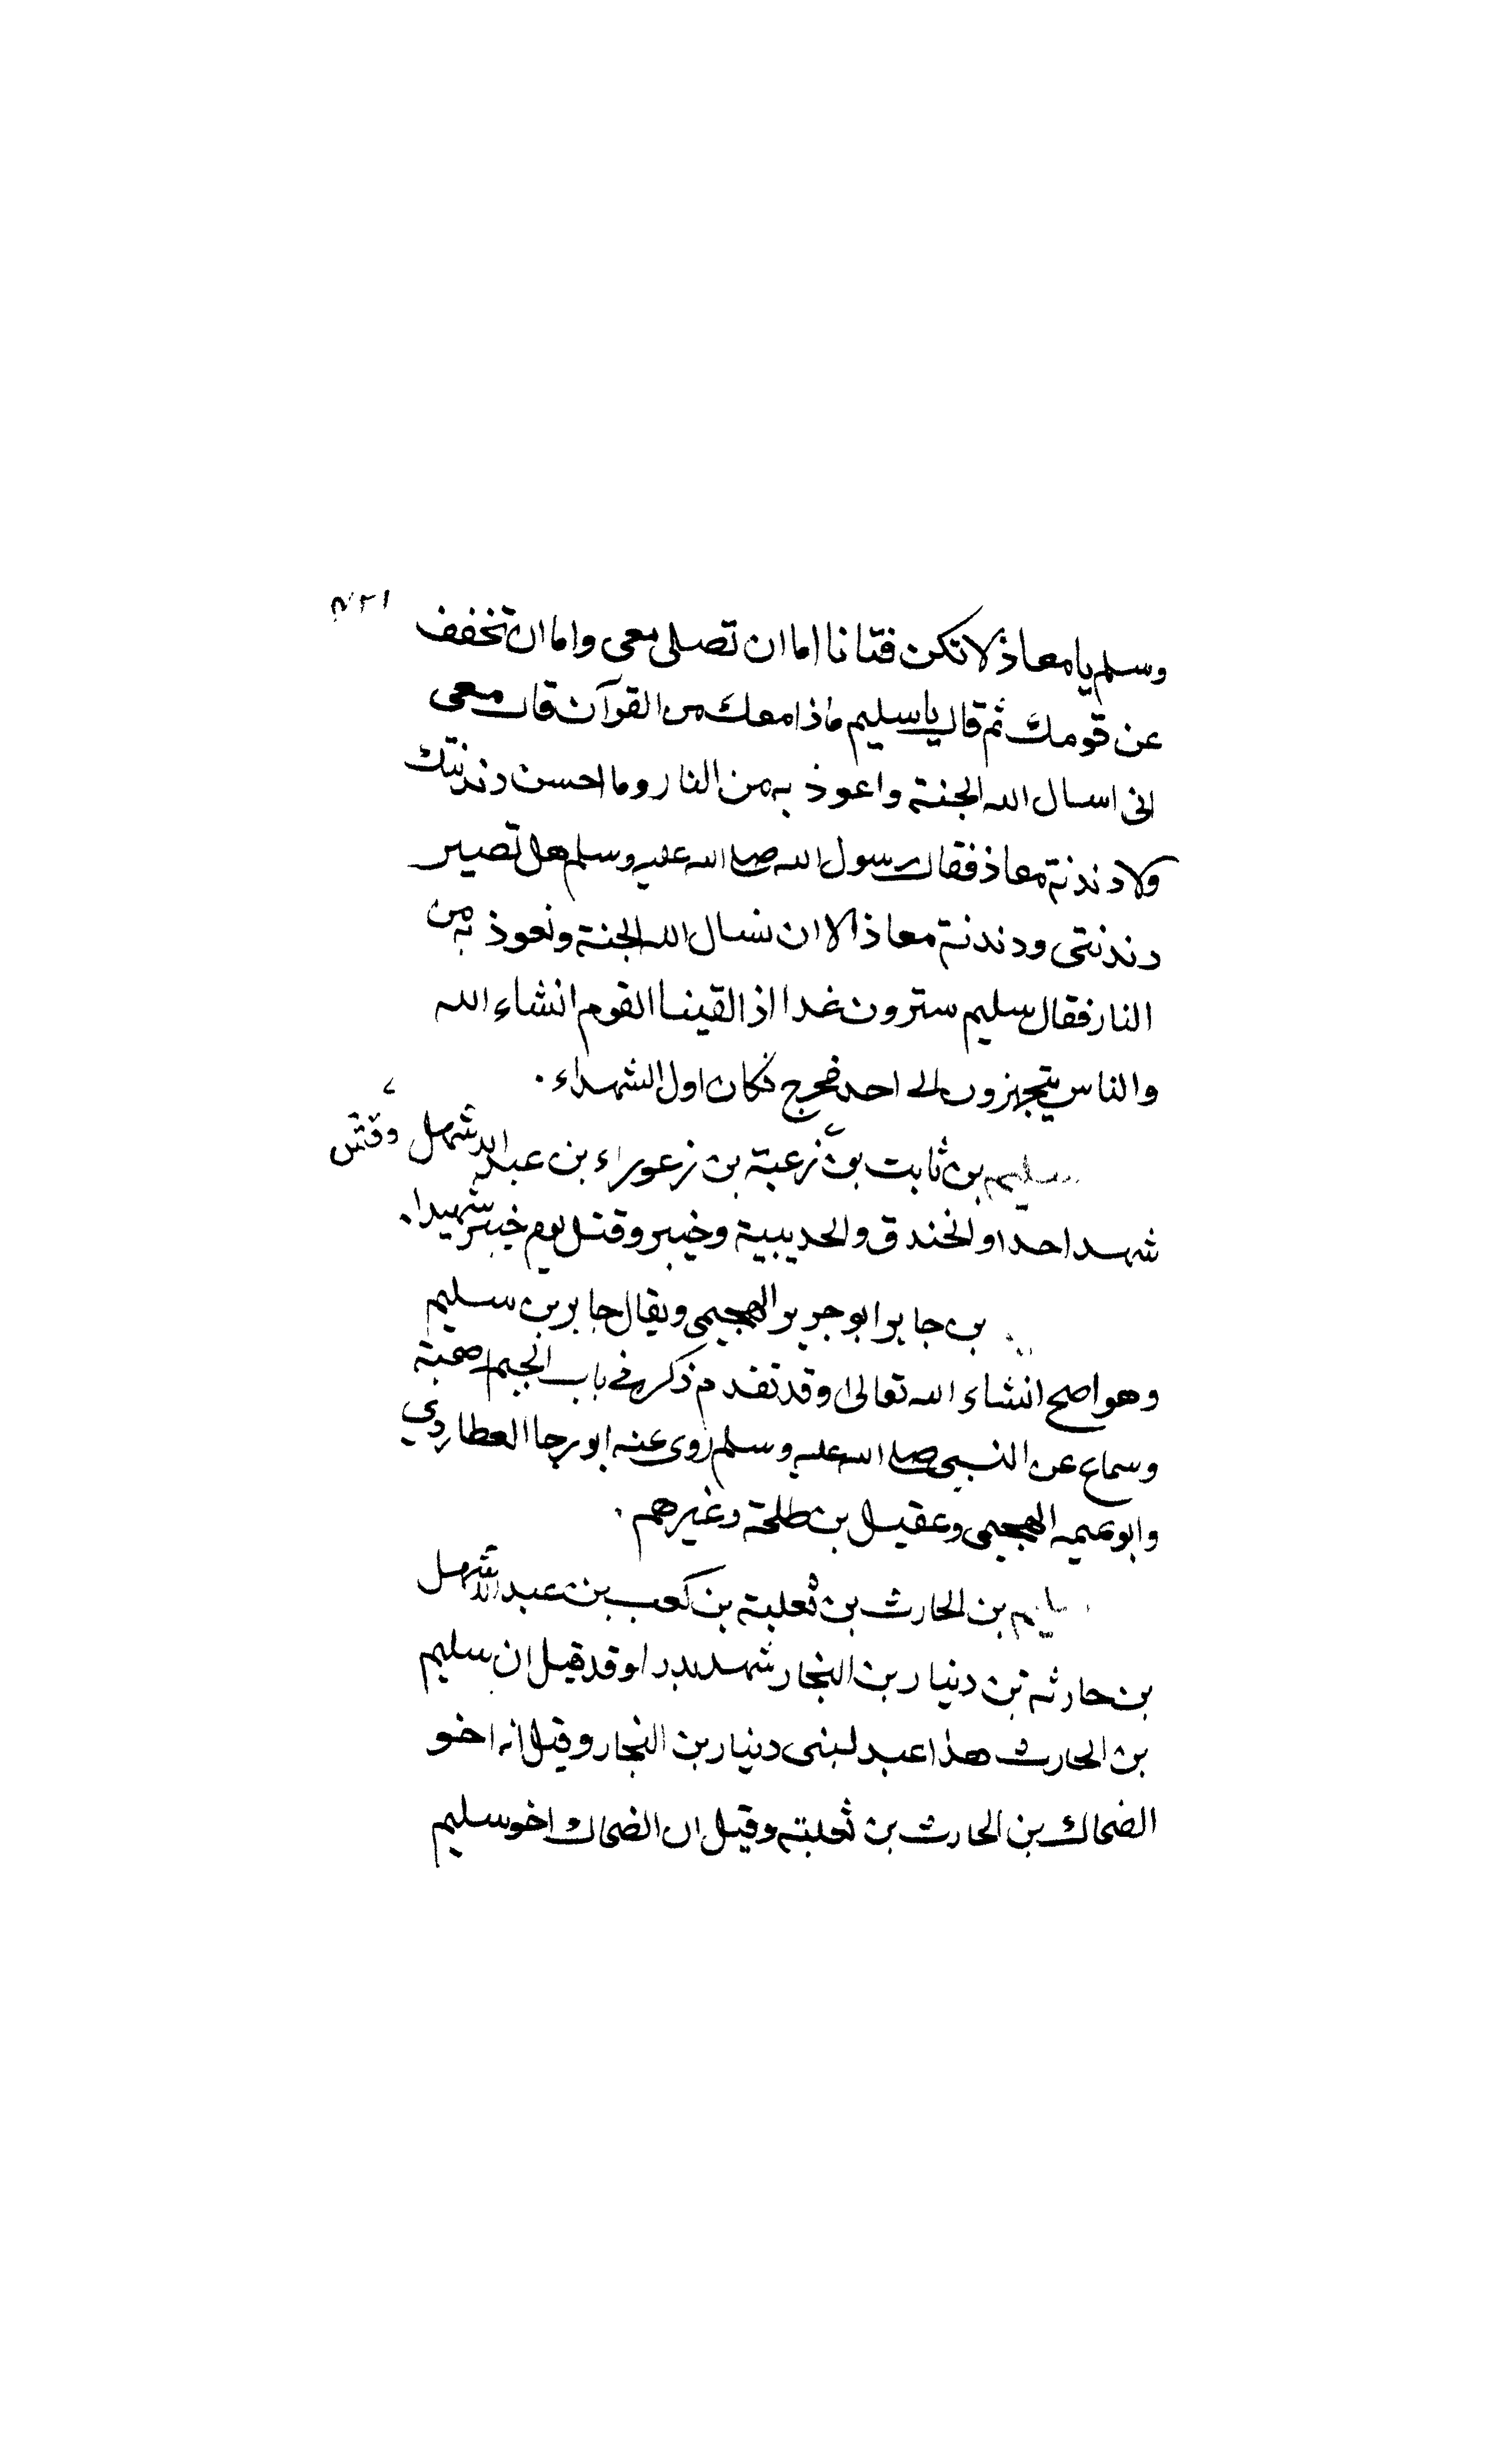 وسلم يا معاذ لا تكن فتانا اما ان تصلى معى واما ان تخفف
عن قومك ثم قال يا سليم ماذا معك من القرآن قال معى
انى اسال الله الجنة واعوذ به من النار وما احسن دندنتك
ولا دندنة معاذ فقال رسول الله صلى الله عليه وسلم هل تصير
دندنتى ودندنة معاذ الا ان نسال الله الجنة ونعوذ به من
النار فقال سليم سترون غدا اذا لقينا القوم انشاء الله
والناس يتجهزون الى احد فخرج فكان اول الشهداء .
سليم بن ثابت بن زعبة بن زعوراء بن عبد الاشهل
وقش
شهد احدا والخندق والحديبية وخيبر وقتل يوم خيبر شهيدا .
بن جابر ابو جرير الهجيمى ويقال جابر بن سليم
وهو اصح انشاء الله تعالى وقد تقدم ذكره فى باب الجيم له صحبة
وسماع عن النبى صلى الله عليه وسلم روى عنه ابو رجا العطاردي
وابو تميمه الهجيمى وعقيل بن طلحة وغيرهم .
سليم بن الحارث بن ثعلبة بن كعب بن عبد الاشهل
بن حارثه بن دينار بن النجار شهد بدرا وقد قيل ان سليم
بن الحارث هذا عبد لبنى دينار بن النجار وقيل انه اخو
الضحاك بن الحارث بن ثعلبة وقيل ان الضحاك اخو سليم